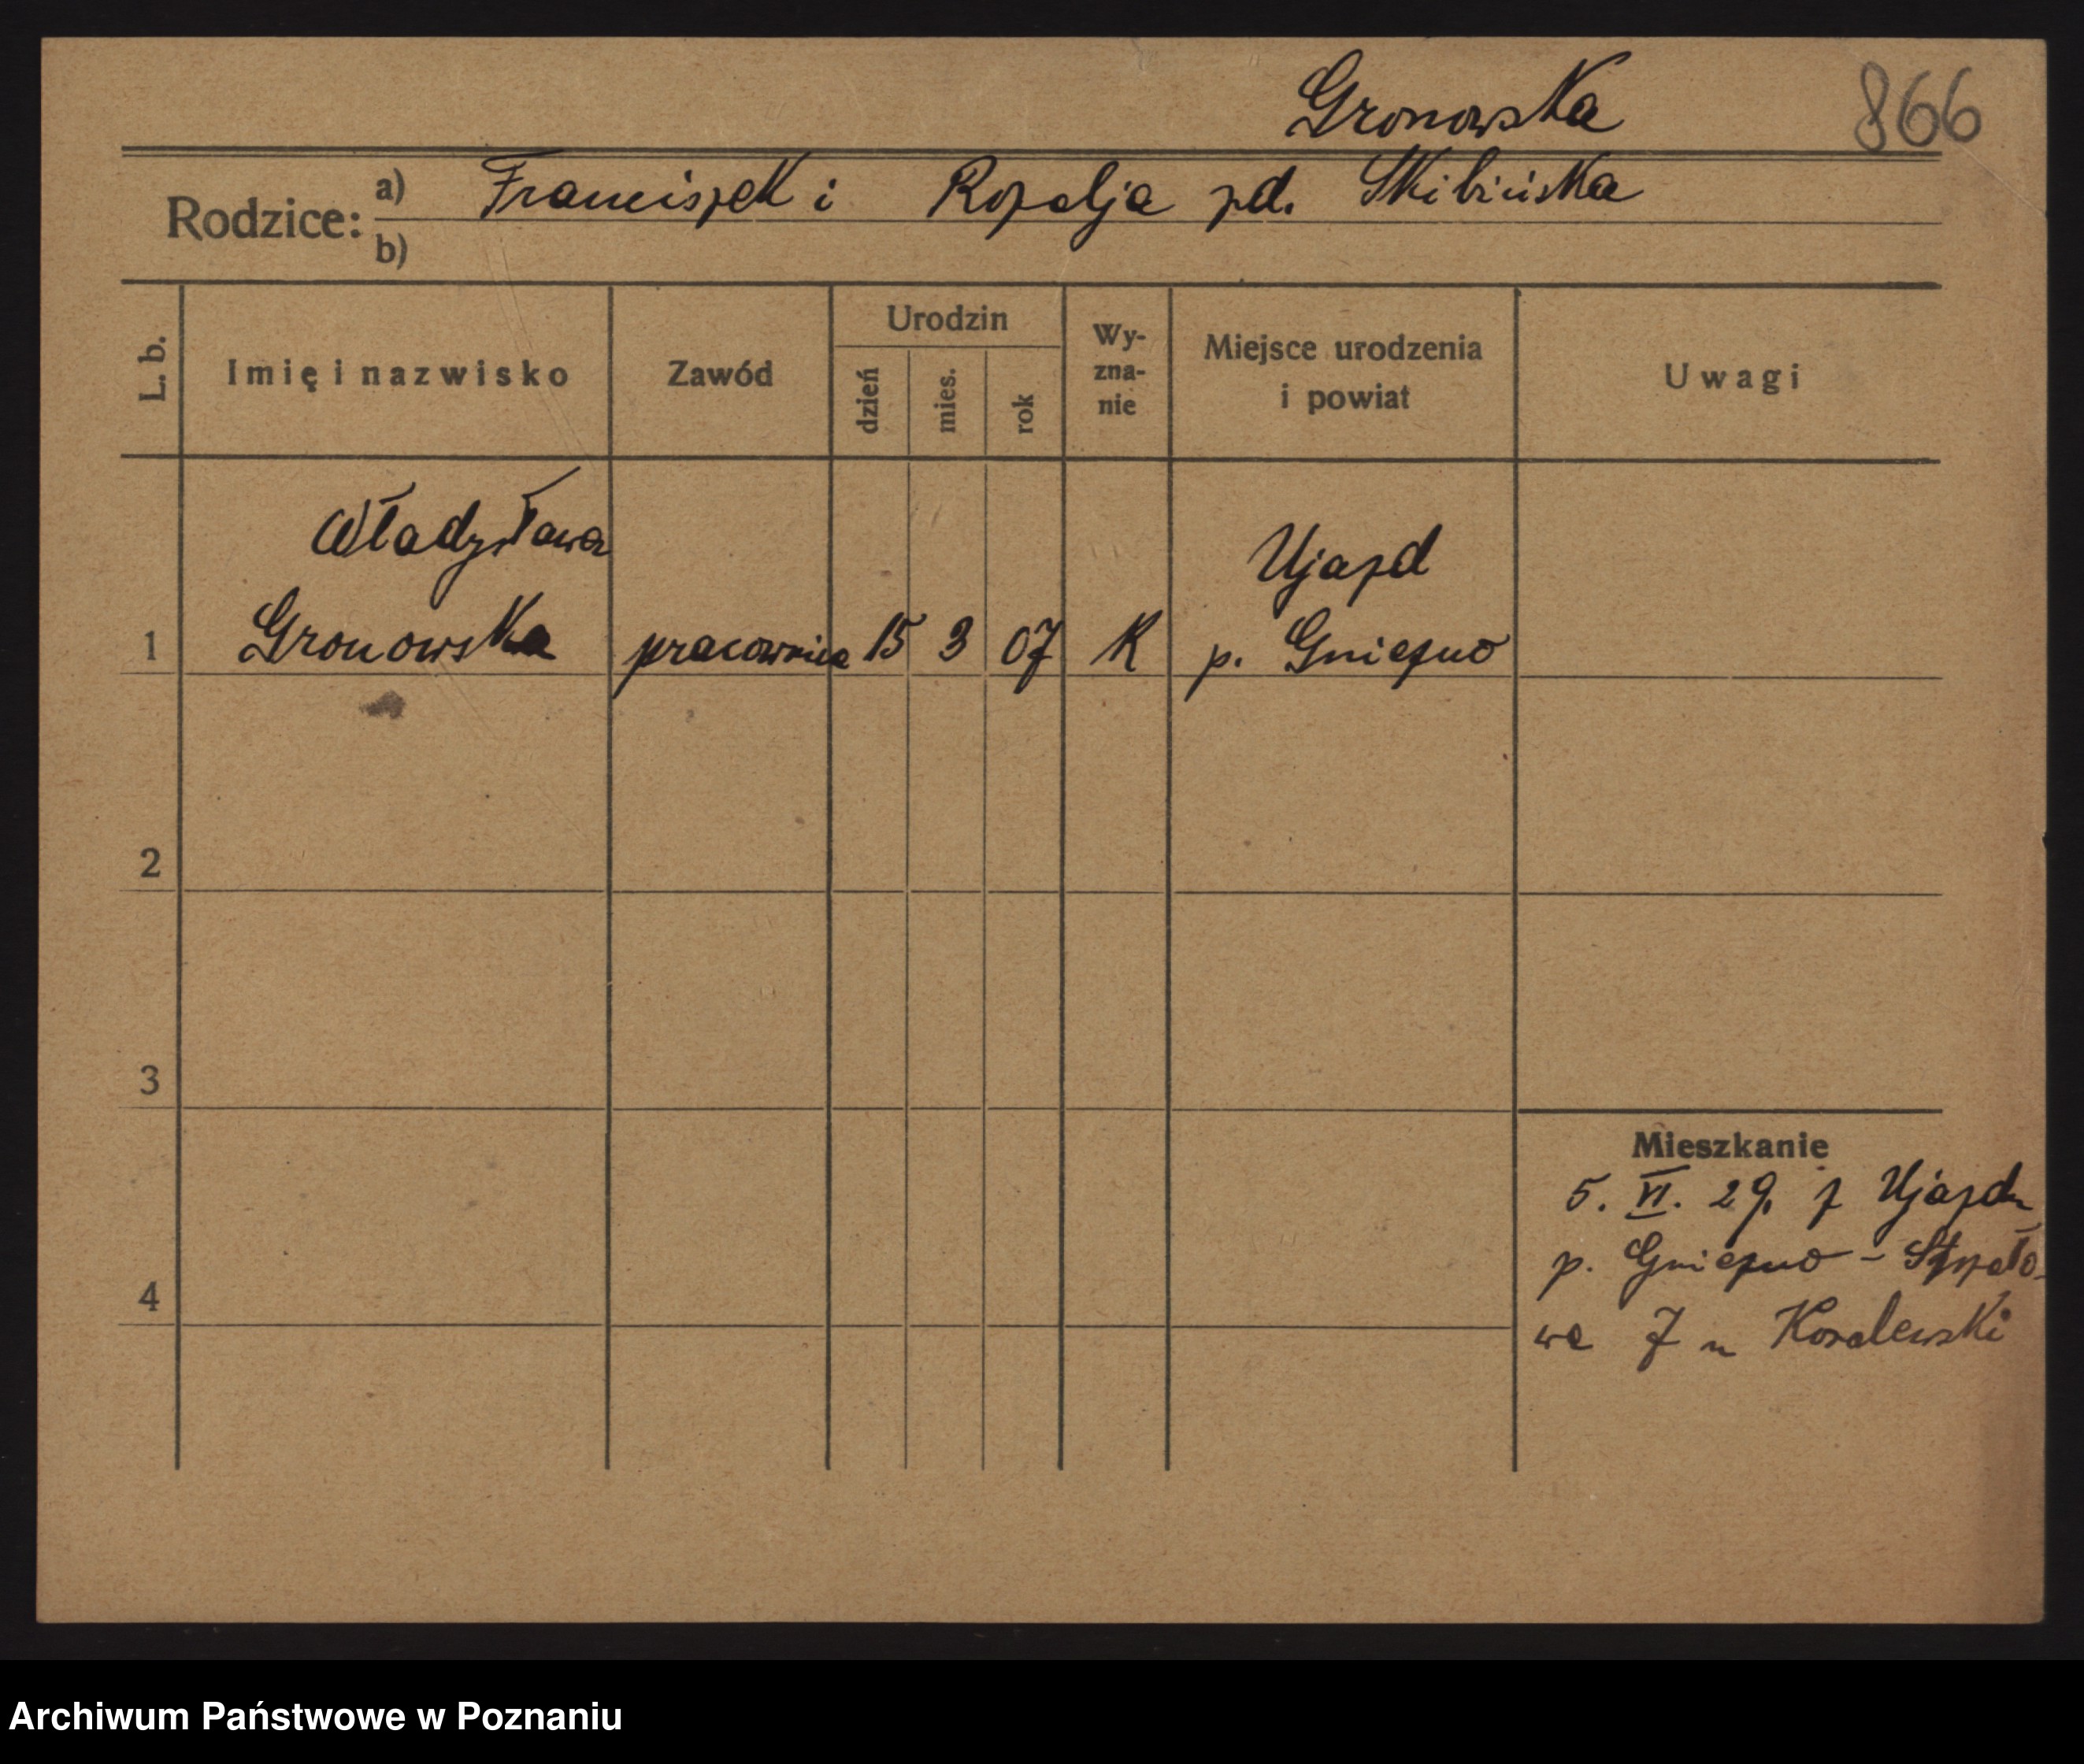 Gronowska
866
Rodzice: a) Franciszek i Rozalja zd. Skibińska
b)
L. b.
Imię i nazwisko
Zawód
Urodzin
dzień
mies.
rok
Wy-
zna-
nie
Miejsce urodzenia
i powiat
Uwagi
Władysława
Gronowska
1
pracownica
15
3
07
K
Ujazd
p. Gniezno
2
3
4
Mieszkanie
5. VI. 29. z Ujazdu
p. Gniezno -
wa 7 u Kowalewski
Archiwum Państwowe w Poznaniu